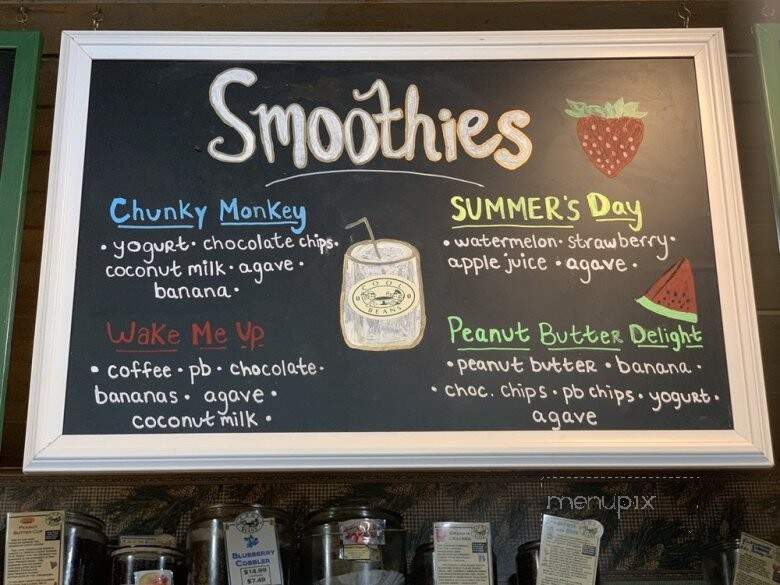 Smoothies
Chunky Monkey
• yogurt • chocolate chips •
coconut milk • agave •
banana •
SUMMER'S Day
• watermelon • strawberry •
apple juice • agave •
COOL
BEANS
Wake Me Up
• coffee • pb • chocolate •
bananas • agave •
coconut milk •
Peanut Butter Delight
• peanut butter • banana •
• choc. chips • pb chips • yogurt •
agave
menupix
PEANUT
BUTTER CUP
BLUEBERRY
COBBLER
$14.99
$7.49